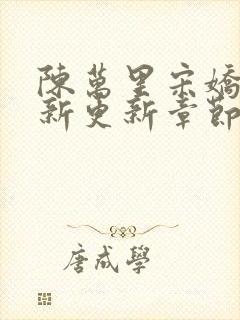 陳萬里宋嬌
新更新章節
唐咸學